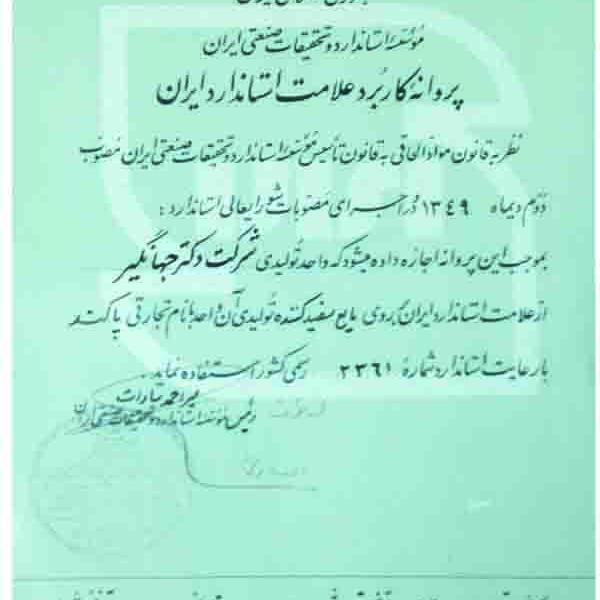 مؤسسه استاندارد و تحقیقات صنعتی ایران
پروانه کاربرد علامت استاندارد ایران
نظر به قانون مواد الحاقی به قانون تأسیس مؤسسه استاندارد و تحقیقات صنعتی ایران مصوب
دوم دیماه ۱۳٤۹ و در اجرای مصوبات شورایعالی استاندارد :
بموجب این پروانه اجازه داده میشود که واحد تولیدی شرکت دکتر جهانگیر
از علامت استاندارد ایران بروی مایع سفید کننده تولیدی آن واحد با نام تجارتی پاکنند
با رعایت استاندارد شماره ۲۳٦۱ رسمی کشور استفاده نماید .
رئیس مؤسسه استاندارد و تحقیقات صنعتی ایران